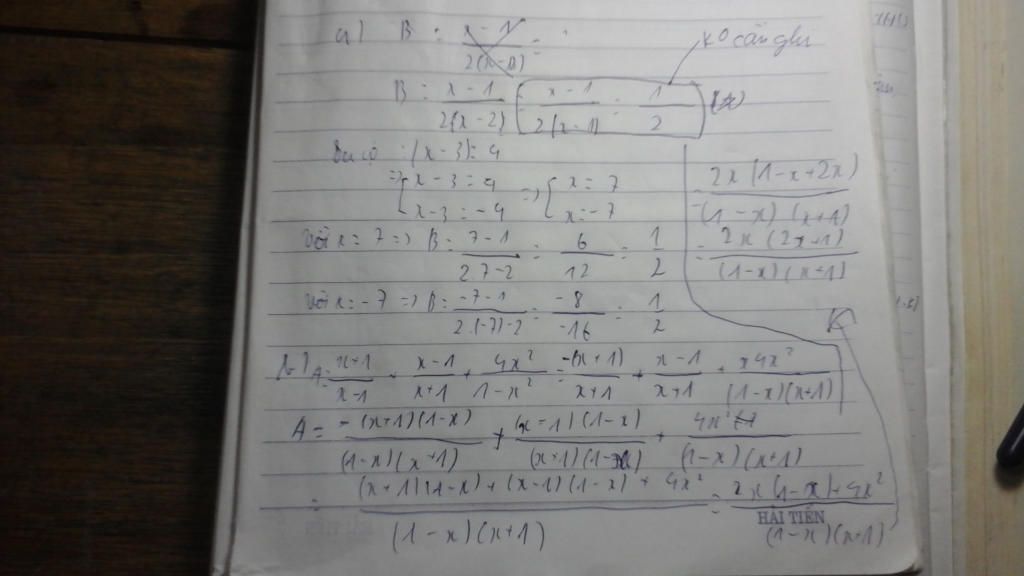 a) B = x - 1 / 2(x-1) =
Ko cần ghi
B = x - 1 / 2(x - 2) = x - 1 / 2(x - 1) = 1 / 2
(x - 3) = 4
=> { x - 3 = 4 => { x = 7
x - 3 = -4 x = -7
Với x = 7 => B = 7 - 1 / 2.7 - 2 = 6 / 12 = 1 / 2
Với x = -7 => B = -7 - 1 / 2.(-7) - 2 = -8 / -16 = 1 / 2
= 2x(1 - x + 2x) / (1 - x)(x + 1)
= 2x(2x + 1) / (1 - x)(x + 1)
b) A = x + 1 / x - 1 - x - 1 / x + 1 + 4x² / 1 - x² = -(x + 1) / x + 1 + x - 1 / x + 1 + x4x² / (1 - x)(x + 1)
A = -(x + 1)(1 - x) / (1 - x)(x + 1) + (x - 1)(1 - x) / (x + 1)(1 - x) + 4x² / (1 - x)(x + 1)
= (x + 1)(1 - x) + (x - 1)(1 - x) + 4x² / (1 - x)(x + 1) = 2x(1 - x) + 4x² / (1 - x)(x + 1)
HẢI TIẾN